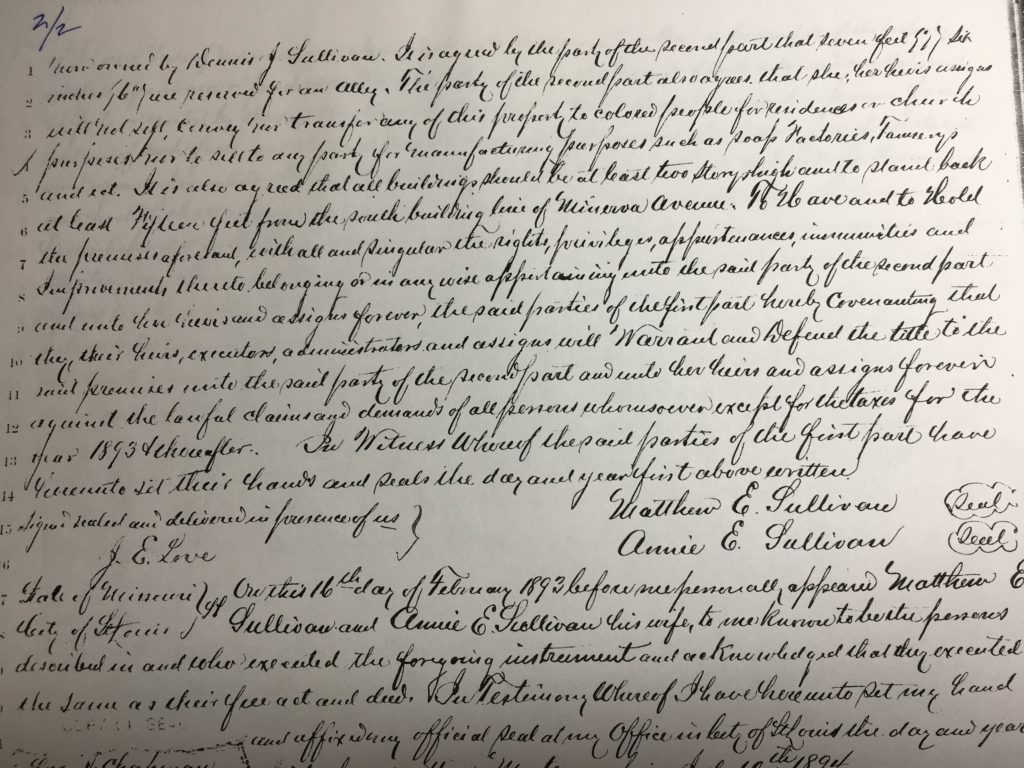 2/2
1 now owned by Dennis J Sullivan. It is agreed by the party of the second part that seven feet (7') six
2 inches (6") are reserved for an alley. The party of the second part also agrees that she, her heirs assigns
3 will not sell, convey nor transfer any of this property to colored people for residences or church
purposes nor to sell to any party for manufacturing purposes such as soap Factories, Tannerys
5 and ect. It is also agreed that all buildings should be at least two storys high and to stand back
6 at least Fifteen feet from the south building line of Minerva Avenue. To Have and to Hold
7 the premises aforesaid, with all and singular the rights, privileges, appurtenances, immunities and
8 Improvements thereto belonging or in any wise appertaining unto the said party of the second part
9 and unto her heirs and assigns forever, the said parties of the first part hereby Covenanting that
10 they, their heirs, executors, administrators and assigns will Warrant and Defend the title to the
11 said premises unto the said party of the second part and unto her heirs and assigns forever
12 against the lawful claims and demands of all persons whomsoever except for the taxes for the
13 year 1893 & thereafter. In Witness Whereof the said parties of the first part have
14 hereunto set their hands and seals the day and year first above written
15 Signed sealed and delivered in presence of us } Matthew E. Sullivan Seal
6 J. E. Love Annie E. Sullivan Seal
7 State of Missouri } ss On this 16th day of February 1893 before me personally appeared Matthew E
8 City of St Louis } Sullivan and Annie E Sullivan his wife, to me known to be the persons
described in and who executed the foregoing instrument and acknowledged that they executed
the same as their free act and deed. In Testimony Whereof I have hereunto set my hand
and affixed my official seal at my Office in City of St Louis the day and year
10th 1894